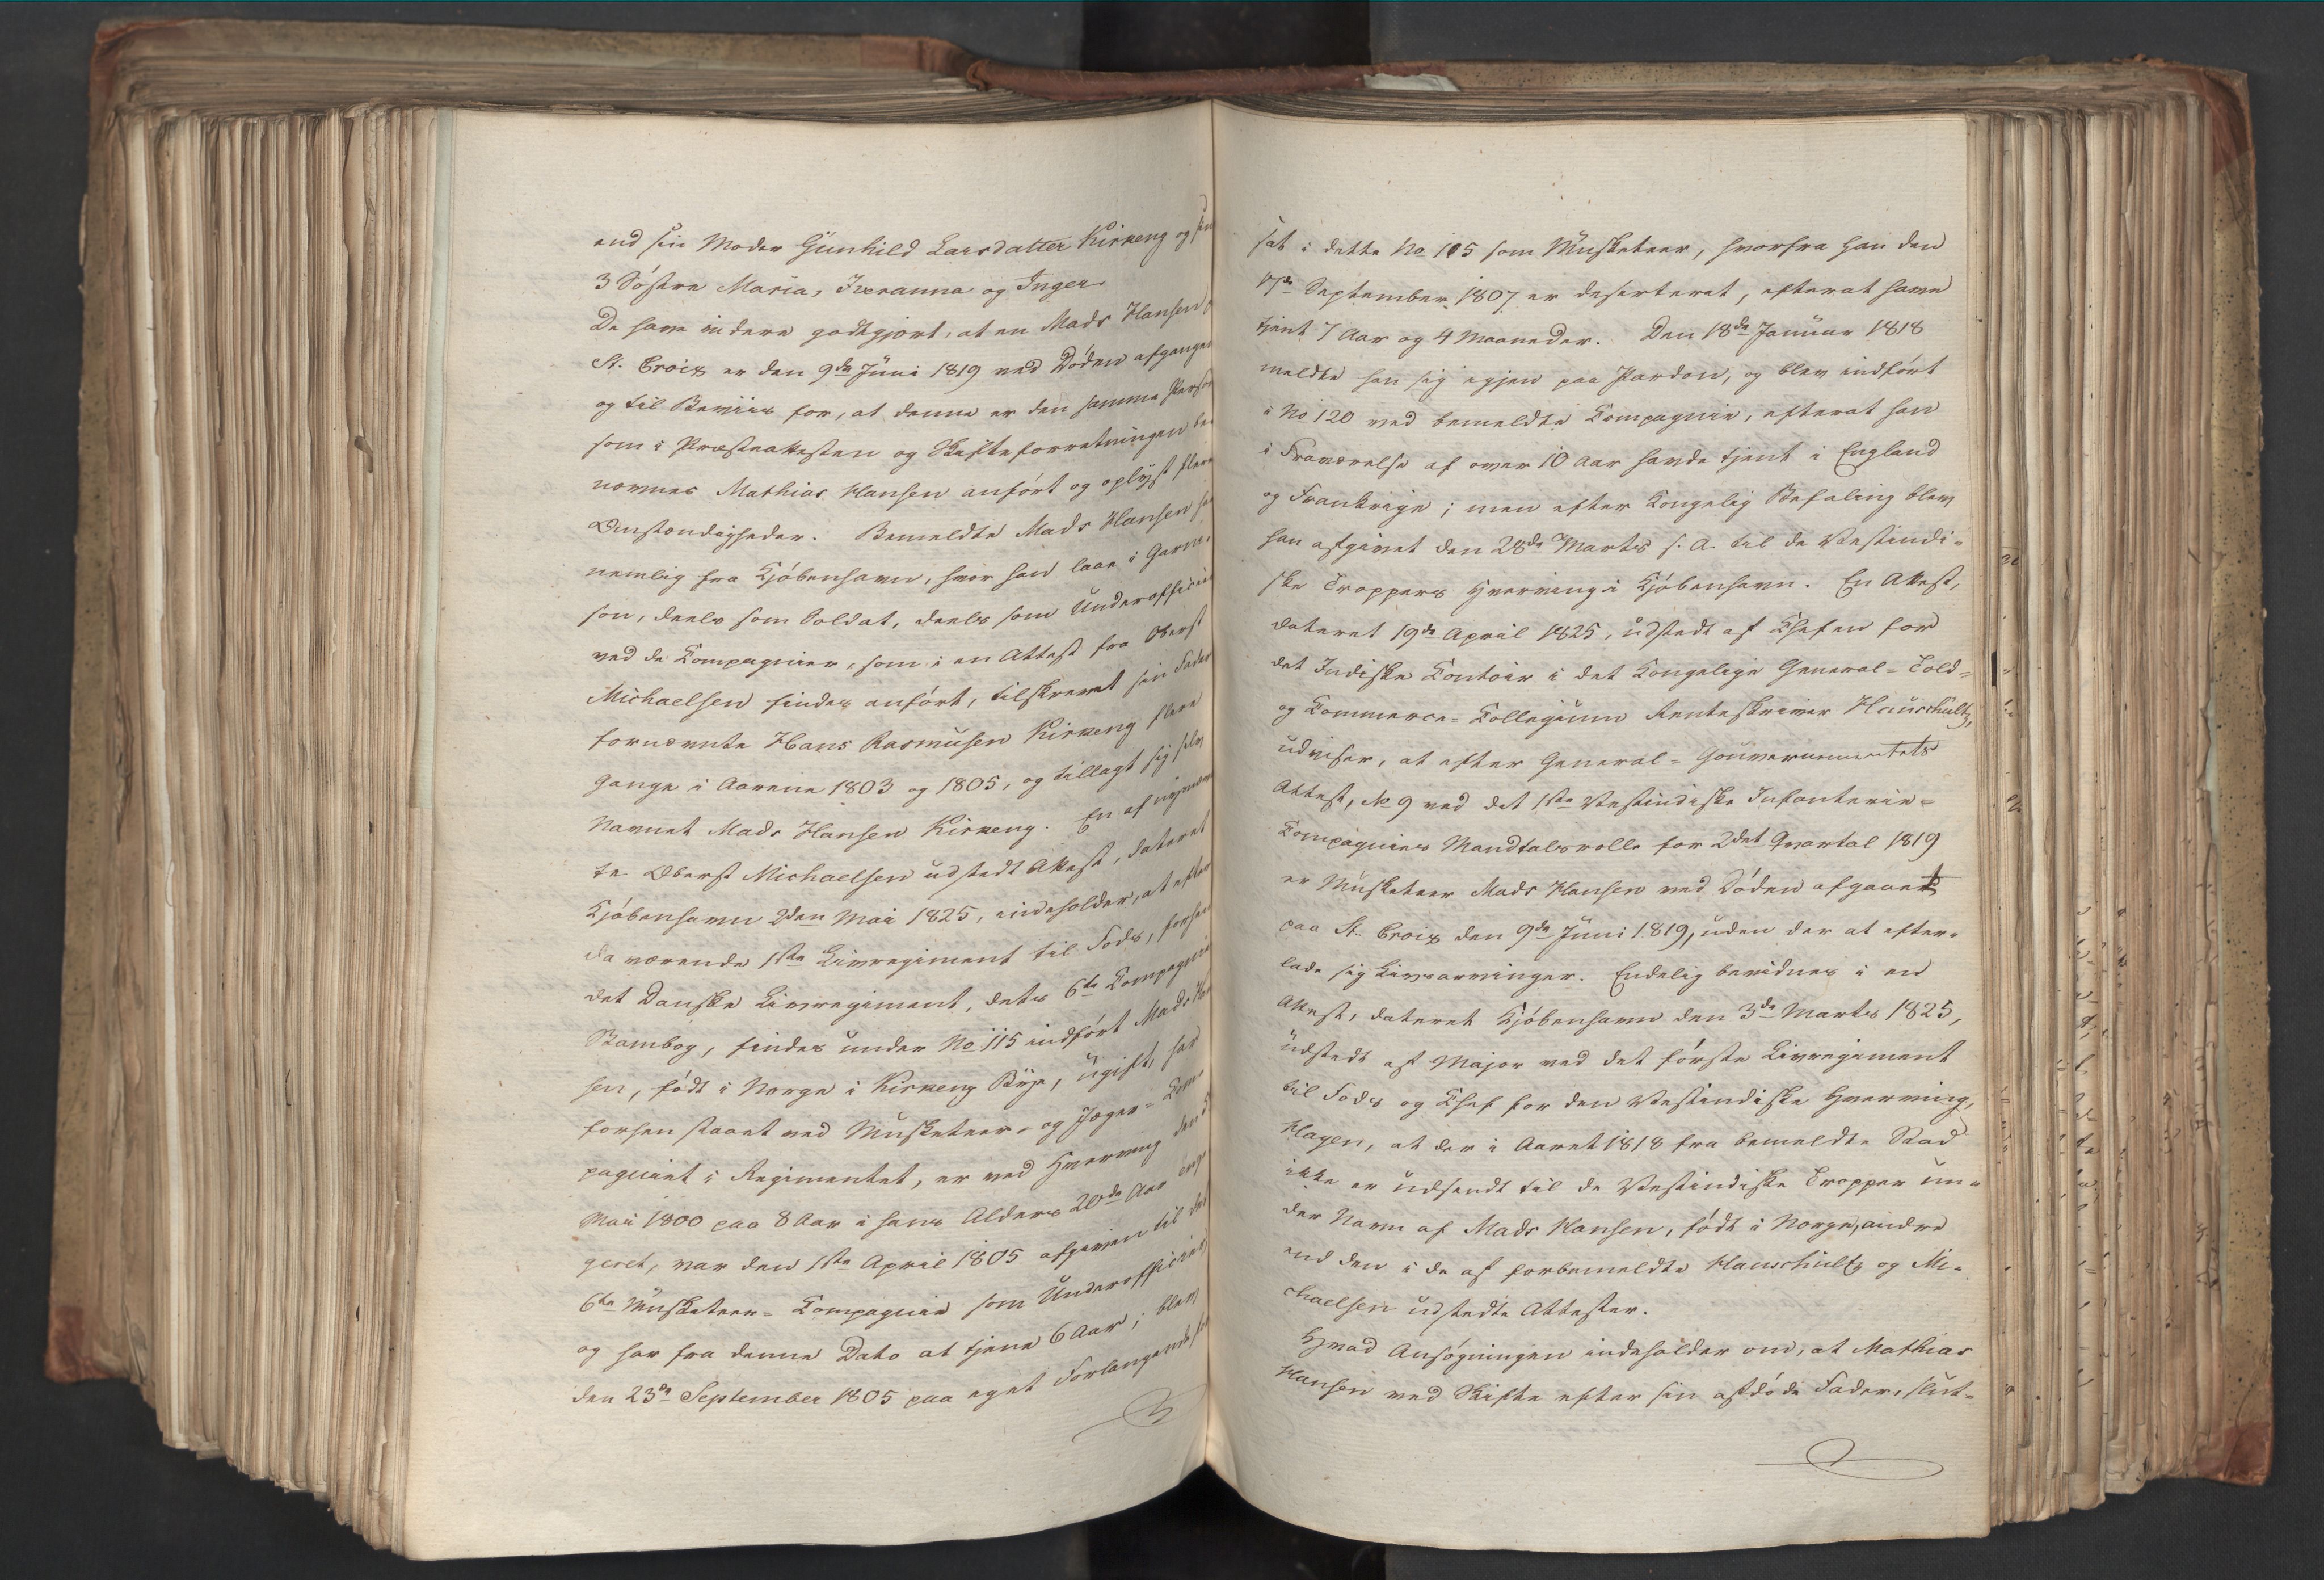 end sin Moder Gunhild Larsdatter Kirkeng og sin
3 Söstre Maria, Iveranna og Inger.
De have videre godtgjort, at en Mads Hansen
St. Croix er den 9de Juni 1819 ved Döden afgangen
og til Beviis for, at denne er den samme Person
som i Præsteattesten og Skifteforretningen be-
nævnes Mathias Hansen anfört og oplyst flere
Omstændigheder. Bemeldte Mads Hansen har
nemlig fra Kjöbenhavn, hvor han laae i Garni-
son, deels som Soldat, deels som Underofficier
ved de Compagnier, som i en Attest fra Oberst
Michaelsen findes anfört, tilskrevet sin Fader
fornævnte Hans Rasmusen Kirkeng flere
Gange i Aarene 1803 og 1805, og tillagt sig selv
Navnet Mads Hansen Kirkeng. En af nysnævn-
te Oberst Michaelsen udstedt Attest, dateret
Kjöbenhavn 2den Mai 1825, indeholder, at efter
da værende 1ste Livregiment til Fods, forhen
det Danske Livregiment, dets 6te Compagnie
Stambog, findes under No 115 indfört Mads Han-
sen, födt i Norge i Kirkeng Bye, ugift, har
forhen staaet ved Musketeer- og Jæger-Com-
pagniet i Regimentet, er ved Hverving den
Mai 1800 paa 8 Aar i hans Alders 20de Aar enga-
geret, var den 1ste April 1805 afgiven til det
6te Musketeer-Compagnie som Underofficier,
og har fra denne Dato at tjene 6 Aar; blev
den 23de September 1805 paa eget Forlangende
sat i dette No 115 som Musketeer, hvorfra han den
17de September 1807 er deserteret, efterat have
tjent 7 Aar og 4 Maaneder. Den 18de Januar 1818
meldte han sig igjen paa Pardon, og blev indfört
i No 120 ved bemeldte Compagnie, efterat han
i Fraværelse af over 10 Aar havde tjent i England
og Frankrige; men efter Kongelig Befaling blev
han afgivet den 28de Marts s. A. til de Vestindi-
ske Troppers Hverving i Kjöbenhavn. En Attest,
dateret 19de April 1825, udstedt af Chefen for
det Indiske Contoir i det Kongelige General-Told-
og Commerce-Collegium Renteskriver Hauschultz,
udviser, at efter General-Gouvernementets
Attest, No 9 ved det 1ste Vestindiske Infanterie-
Compagnies Mandtalsrolle for 2det Qvartal 1819
er Musketeer Mads Hansen ved Döden afgaaet
paa St. Croix den 9de Juni 1819, uden der at efter-
lade sig Livsarvinger. Endelig bevidnes i en
Attest, dateret Kjöbenhavn den 3de Marts 1825,
udstedt af Major ved det förste Livregiment
til Fods og Chef for den Vestindiske Hverving,
Hagen, at der i Aaret 1818 fra bemeldte Stad
ikke er udsendt til de Vestindiske Tropper un-
der Navn af Mads Hansen, födt i Norge, andre
end den i de af forbemeldte Hauschultz og Mi-
chaelsen udstedte Attester.
Hvad Ansögningen indeholder om, at Mathias
Hansen ved Skifte efter sin afdöde Fader, slut-